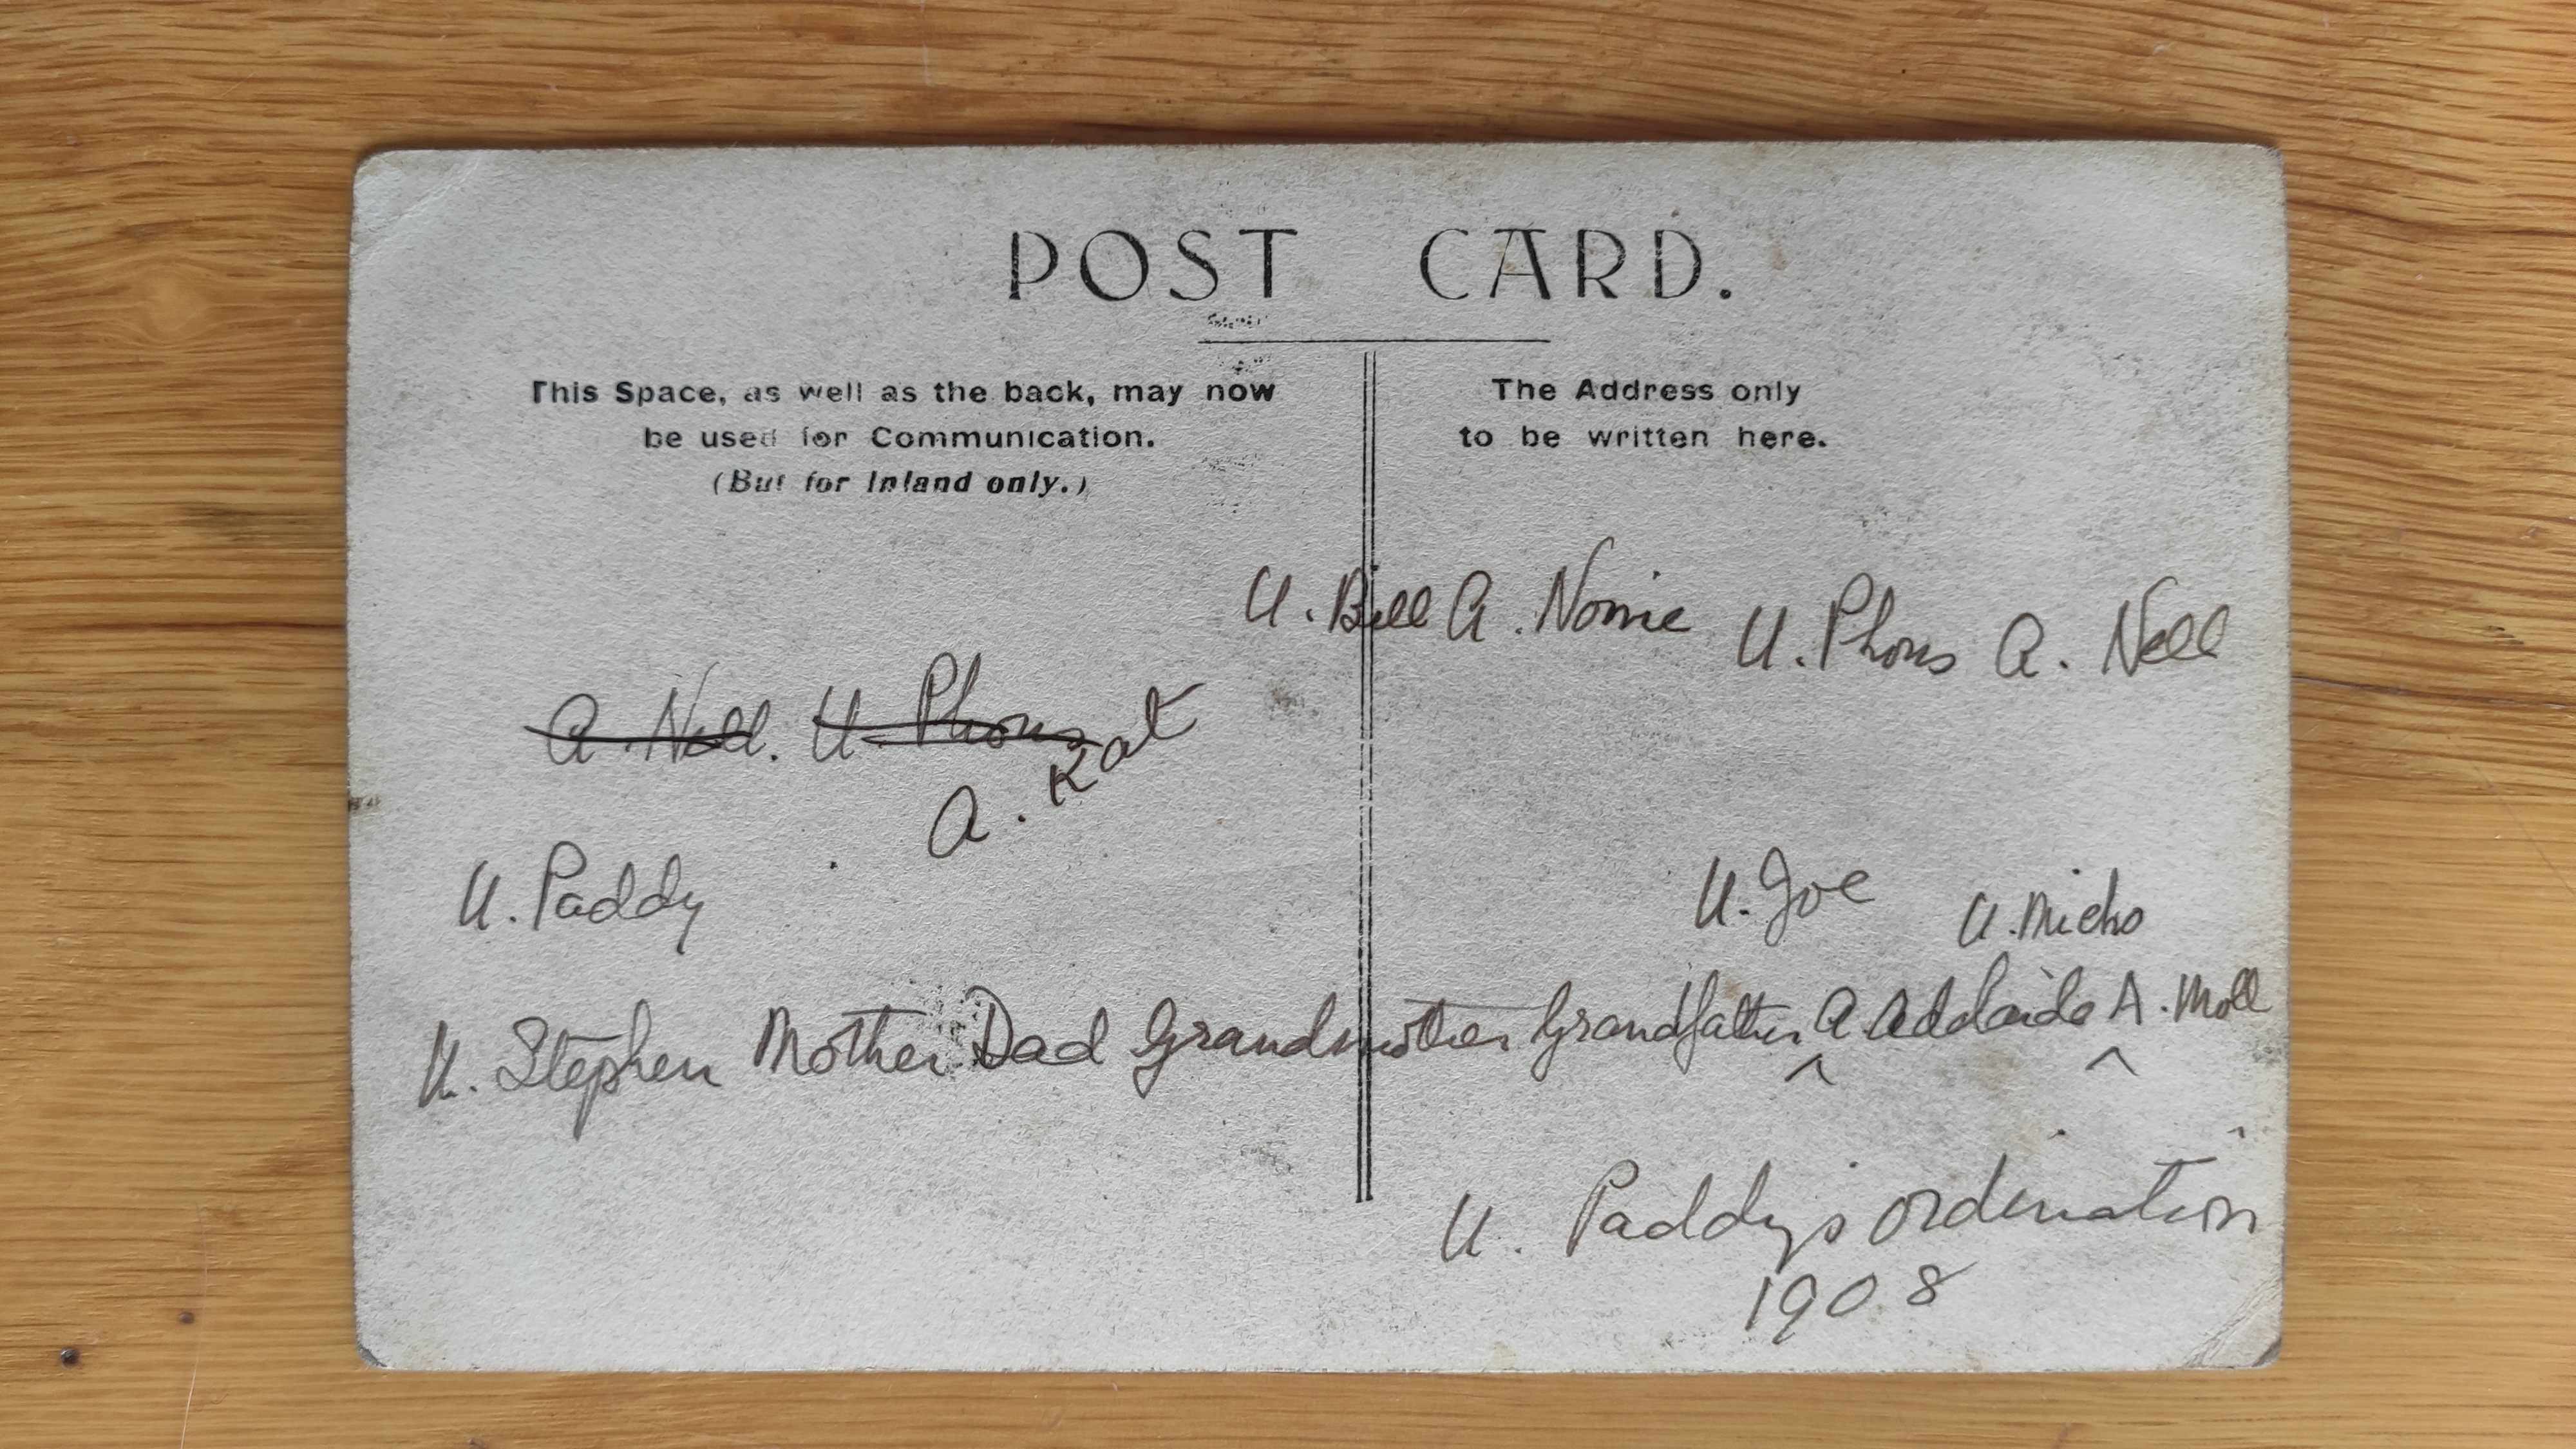 POST CARD.
This Space, as well as the back, may now
be used for Communication.
(But for Inland only.)
The Address only
to be written here.
U. Bill A. Nonie U. Phons A. Nell
A Nell. U. Phons
A. Kat
U. Paddy
U. Joe U. Micho
U. Stephen Mother Dad Grandmother Grandfather A Adelaide A. Moll
^ ^
U. Paddy's ordination
1908